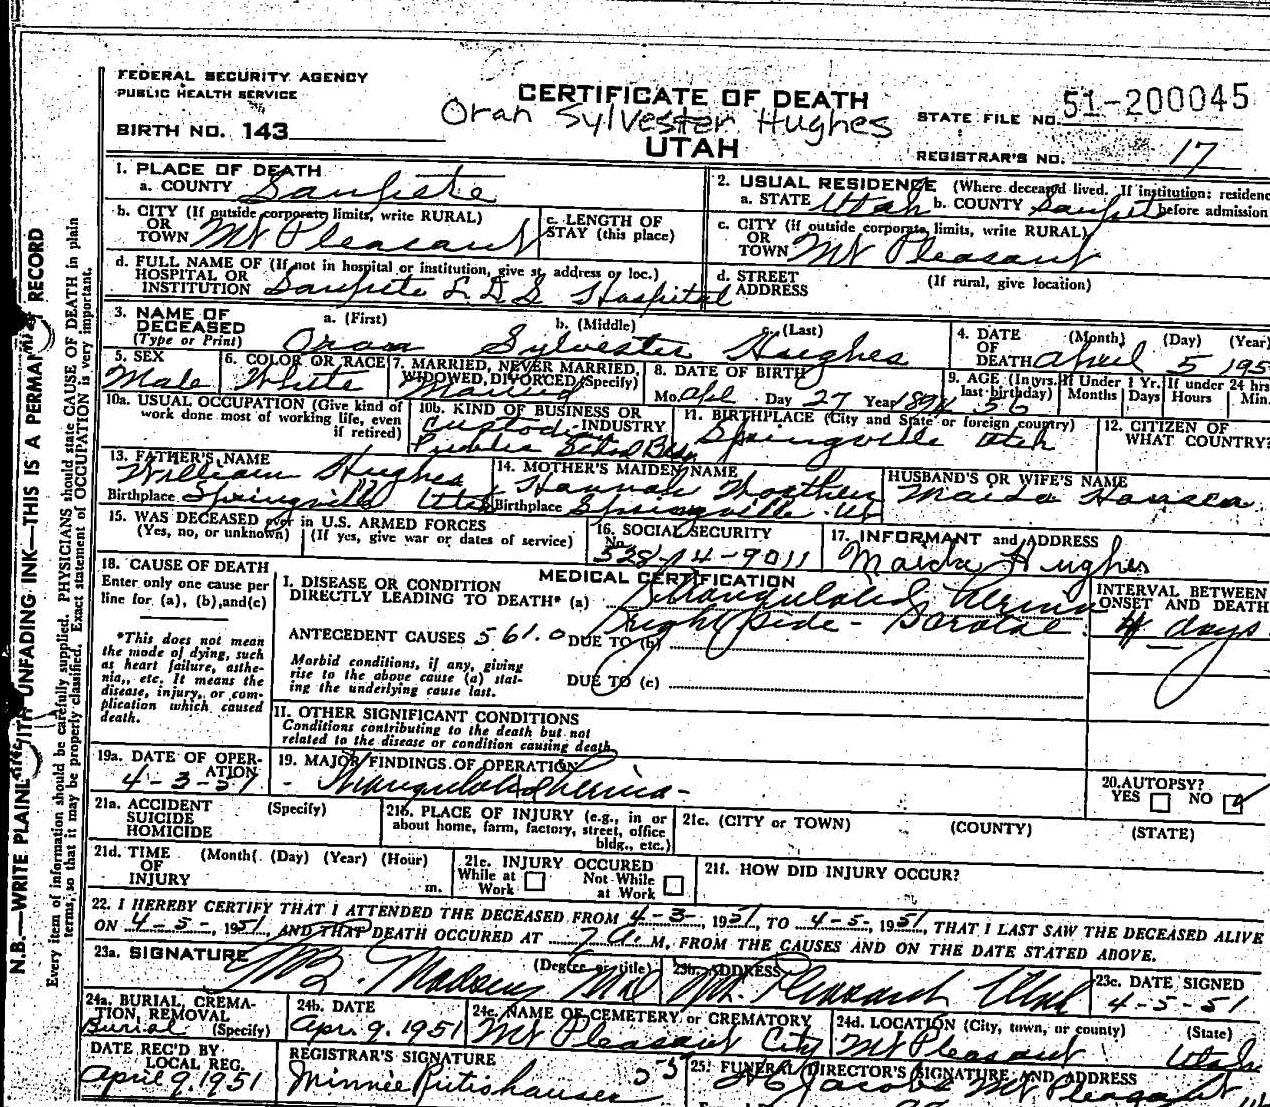 FEDERAL SECURITY AGENCY
PUBLIC HEALTH SERVICE
CERTIFICATE OF DEATH
Oran Sylvester Hughes
UTAH
BIRTH NO. 143
STATE FILE NO. 51-200045
REGISTRAR'S NO. 17
1. PLACE OF DEATH
a. COUNTY Sanpete
2. USUAL RESIDENCE (Where deceased lived. If institution: residence before admission
a. STATE Utah b. COUNTY Sanpete
b. CITY (If outside corporate limits, write RURAL) OR TOWN Mt Pleasant
c. LENGTH OF STAY (this place)
c. CITY (if outside corporate limits, write RURAL) OR TOWN Mt Pleasant
d. FULL NAME OF (If not in hospital or institution, give st. address or loc.) HOSPITAL OR INSTITUTION Sanpete L.D.S. Hospital
d. STREET ADDRESS (If rural, give location)
3. NAME OF DECEASED (Type or Print)
a. (First) b. (Middle) c. (Last)
Oran Sylvester Hughes
4. DATE OF DEATH (Month) (Day) (Year)
April 5 195
5. SEX Male
6. COLOR OR RACE White
7. MARRIED, NEVER MARRIED, WIDOWED, DIVORCED (Specify) Married
8. DATE OF BIRTH
Mo. Apl Day 27 Year 1894
9. AGE (In yrs. last birthday) 56
If Under 1 Yr. Months Days
If under 24 hrs Hours Min.
10a. USUAL OCCUPATION (Give kind of work done most of working life, even if retired)
10b. KIND OF BUSINESS OR INDUSTRY
Custodian
Public School
11. BIRTHPLACE (City and State or foreign country)
Springville Utah
12. CITIZEN OF WHAT COUNTRY?
13. FATHER'S NAME
William Hughes
Birthplace Springville Utah
14. MOTHER'S MAIDEN NAME
Hannah
Birthplace Springville Ut
HUSBAND'S OR WIFE'S NAME
Maida
15. WAS DECEASED ever in U.S. ARMED FORCES
(Yes, no, or unknown) (If yes, give war or dates of service)
16. SOCIAL SECURITY No.
528-14-9011
17. INFORMANT and ADDRESS
Maida Hughes
18. CAUSE OF DEATH
Enter only one cause per line for (a), (b), and (c)
*This does not mean the mode of dying, such as heart failure, asthenia, etc. It means the disease, injury, or complication which caused death.
MEDICAL CERTIFICATION
I. DISEASE OR CONDITION DIRECTLY LEADING TO DEATH* (a) Strangulated hernia
right side - Scrotal
ANTECEDENT CAUSES 561.0 DUE TO (b)
Morbid conditions, if any, giving rise to the above cause (a) stating the underlying cause last.
DUE TO (c)
INTERVAL BETWEEN ONSET AND DEATH
4 days
II. OTHER SIGNIFICANT CONDITIONS
Conditions contributing to the death but not related to the disease or condition causing death.
19a. DATE OF OPERATION
4-3-51
19. MAJOR FINDINGS OF OPERATION
- Strangulated hernia -
20. AUTOPSY?
YES NO
21a. ACCIDENT SUICIDE HOMICIDE (Specify)
21b. PLACE OF INJURY (e.g., in or about home, farm, factory, street, office bldg., etc.)
21c. (CITY or TOWN) (COUNTY) (STATE)
21d. TIME OF INJURY (Month) (Day) (Year) (Hour) m.
21e. INJURY OCCURED
While at Work Not While at Work
21f. HOW DID INJURY OCCUR?
22. I HEREBY CERTIFY THAT I ATTENDED THE DECEASED FROM 4-3-, 1951, TO 4-5-, 1951, THAT I LAST SAW THE DECEASED ALIVE
ON 4-5-, 1951, AND THAT DEATH OCCURED AT 7 a. M., FROM THE CAUSES AND ON THE DATE STATED ABOVE.
23a. SIGNATURE (Degree or title)
Madsen MD
23b. ADDRESS
Mt. Pleasant Utah
23c. DATE SIGNED
4-5-51
24a. BURIAL, CREMATION, REMOVAL (Specify)
Burial
24b. DATE
Apr. 9, 1951
24c. NAME OF CEMETERY or CREMATORY
Mt Pleasant City
24d. LOCATION (City, town, or county) (State)
Mt Pleasant Utah
DATE REC'D BY LOCAL REG.
April 9, 1951
REGISTRAR'S SIGNATURE
Minnie Rutishauser
25. FUNERAL DIRECTOR'S SIGNATURE AND ADDRESS
Jacobs Mt Pleasant
N.B.—WRITE PLAINLY WITH UNFADING INK—THIS IS A PERMANENT RECORD
Every item of information should be carefully supplied. PHYSICIANS should state CAUSE OF DEATH in plain
terms, so that it may be properly classified. Exact statement of OCCUPATION is very important.